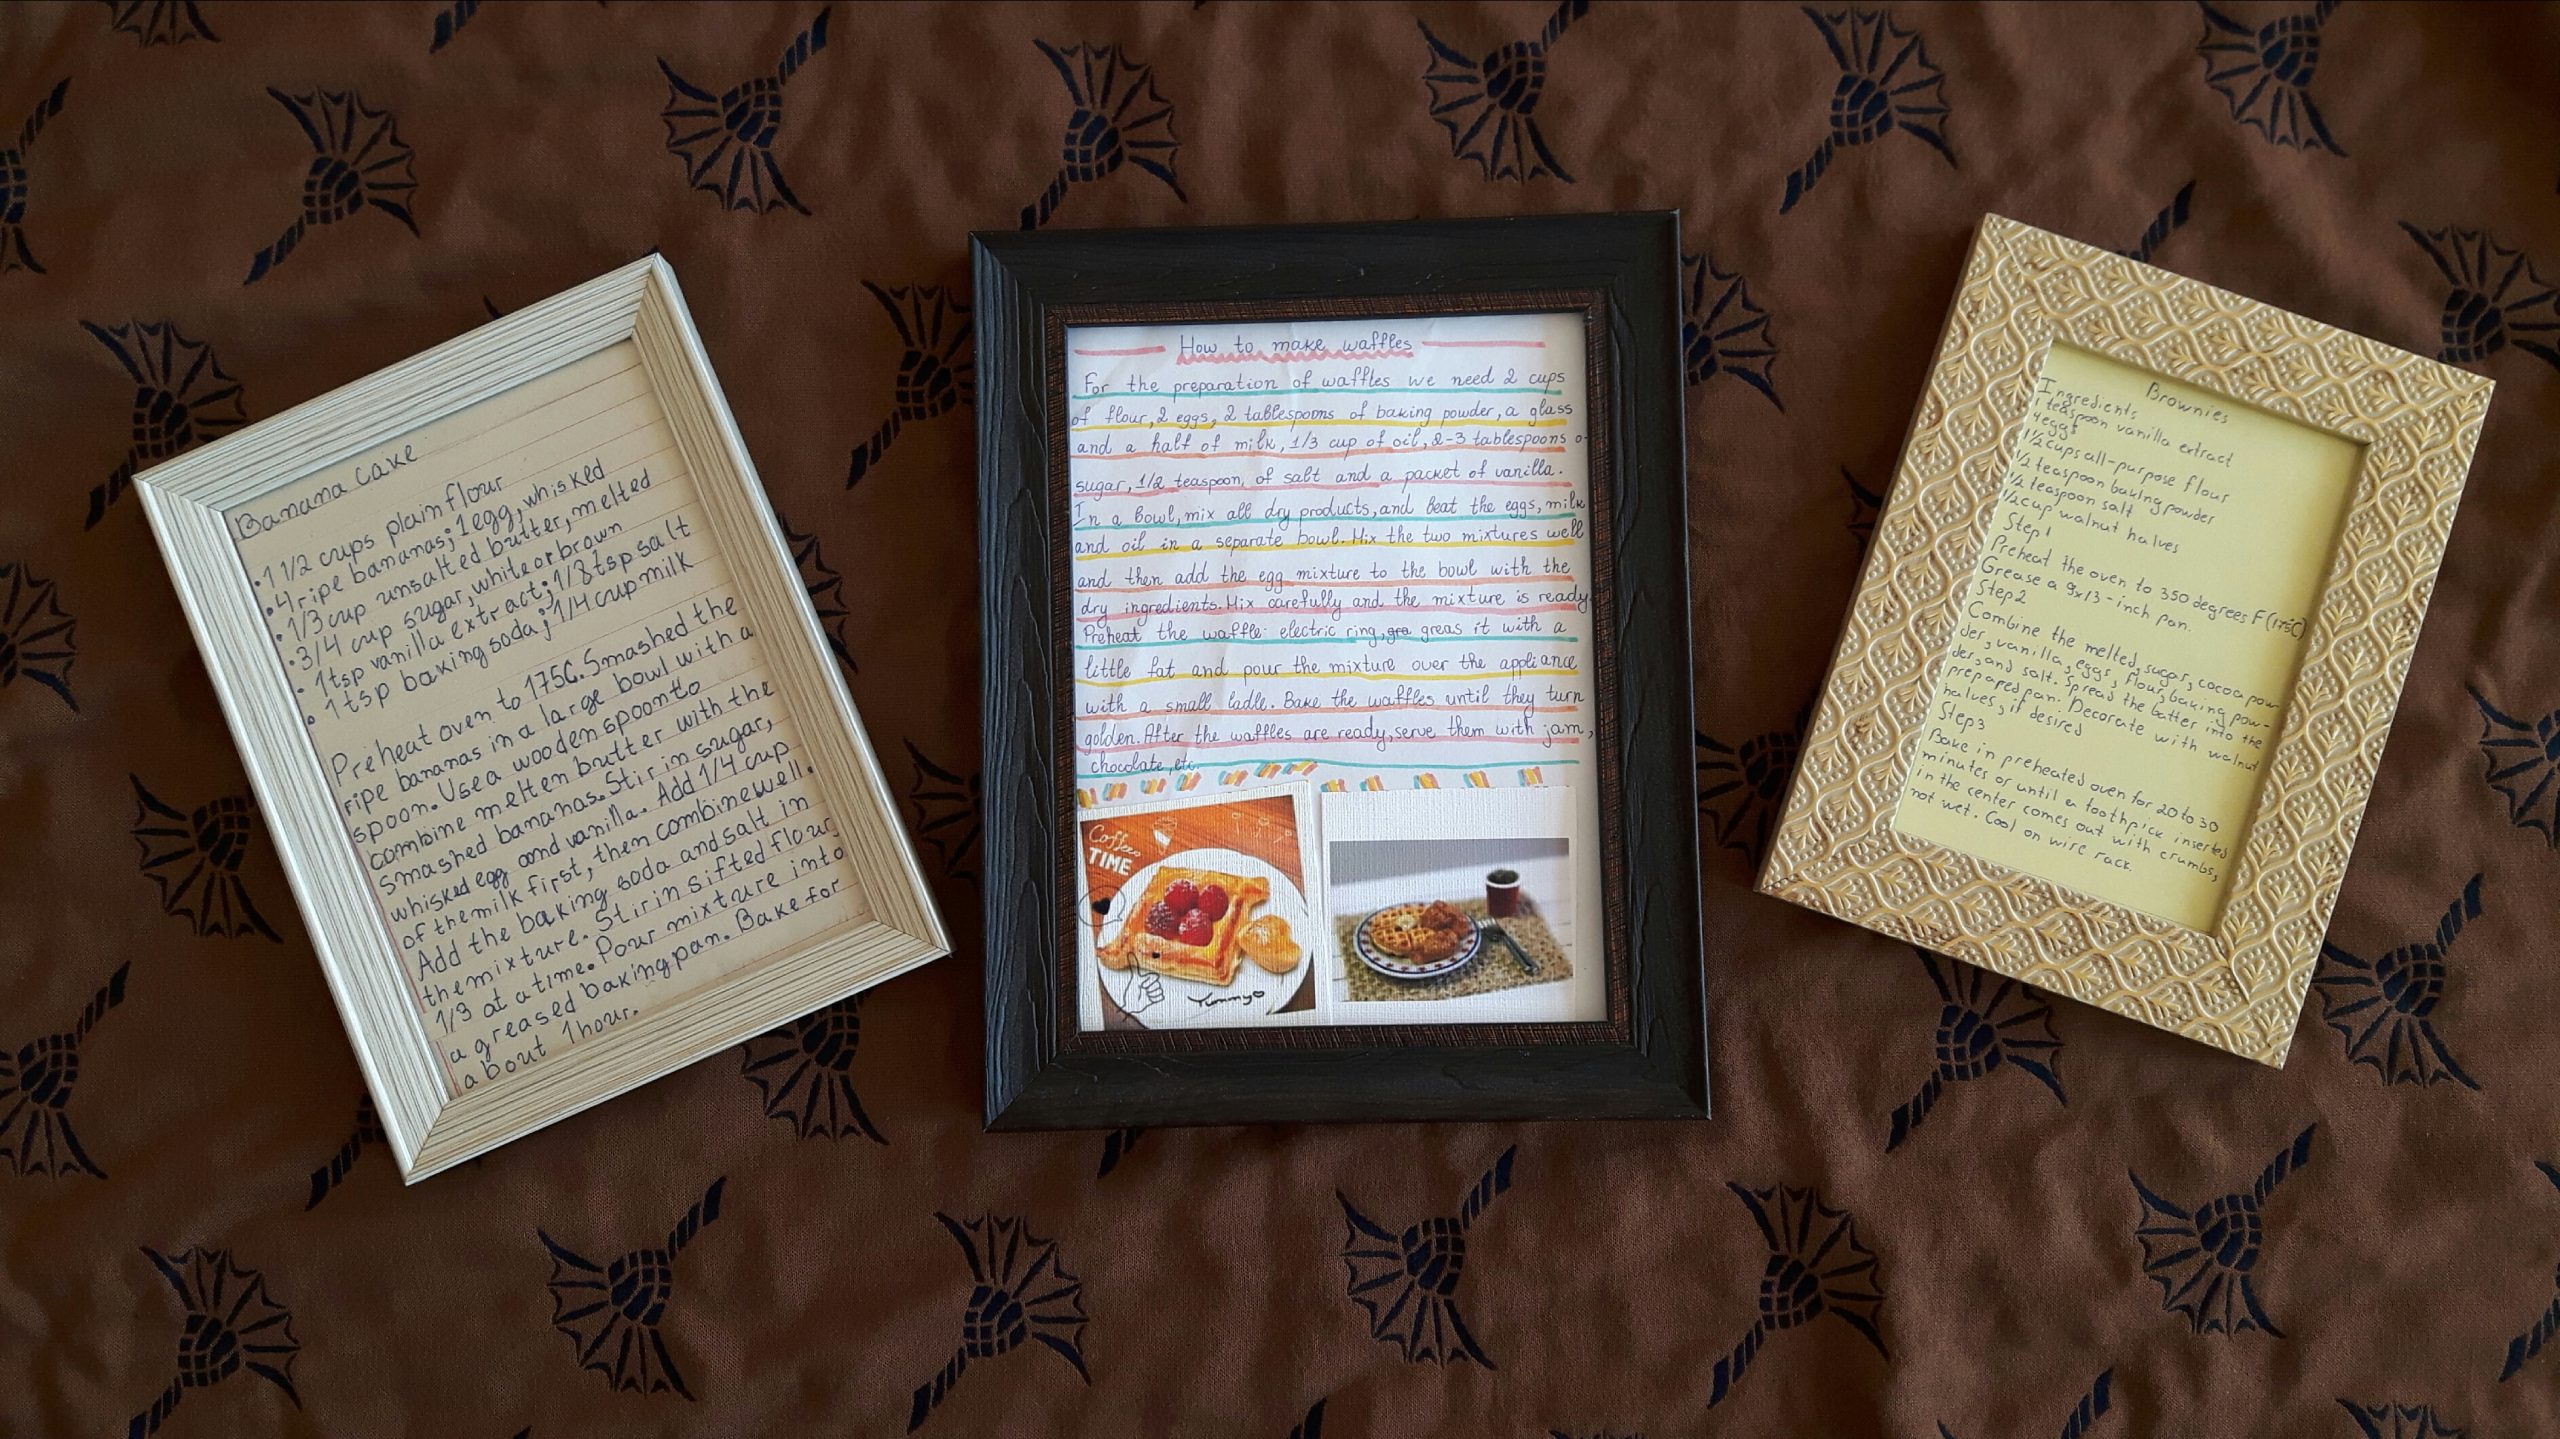 Banana Cake
• 1 1/2 cups plain flour
• 4 ripe bananas; 1 egg, whisked
• 1/3 cup unsalted butter, melted
• 3/4 cup sugar, white or brown
• 1 tsp vanilla extract; 1/8 tsp salt
• 1 tsp baking soda; 1/4 cup milk
Preheat oven to 175C. Smashed the
ripe bananas in a large bowl with a
spoon. Use a wooden spoon to
combine melten butter with the
smashed bananas. Stir in sugar,
whisked egg and vanilla. Add 1/4 cup
of the milk first, then combine well.
Add the baking soda and salt in
the mixture. Stir in sifted flour,
1/3 at a time. Pour mixture into
a greased baking pan. Bake for
about 1 hour.
How to make waffles
For the preparation of waffles we need 2 cups
of flour, 2 eggs, 2 tablespoons of baking powder, a glass
and a half of milk, 1/3 cup of oil, 2-3 tablespoons o
sugar, 1/2 teaspoon, of salt and a packet of vanilla.
In a bowl, mix all dry products, and beat the eggs, milk
and oil in a separate bowl. Mix the two mixtures well
and then add the egg mixture to the bowl with the
dry ingredients. Mix carefully and the mixture is ready.
Preheat the waffle electric ring, gre greas it with a
little fat and pour the mixture over the appliance
with a small ladle. Bake the waffles until they turn
golden. After the waffles are ready, serve them with jam,
chocolate, etc.
Coffee
TIME
Yummy
Brownies
Ingredients
1 teaspoon vanilla extract
4 eggs
1 1/2 cups all-purpose flour
1/2 teaspoon baking powder
1/2 teaspoon salt
1/2 cup walnut halves
Step 1
Preheat the oven to 350 degrees F (175°C)
Grease a 9x13-inch pan.
Step 2
Combine the melted, sugar, cocoa pow-
der, vanilla, eggs, flour, baking pow-
der, and salt. Spread the batter into the
prepared pan. Decorate with walnut
halves, if desired
Step 3
Bake in preheated oven for 20 to 30
minutes or until a toothpick inserted
in the center comes out with crumbs,
not wet. Cool on wire rack.